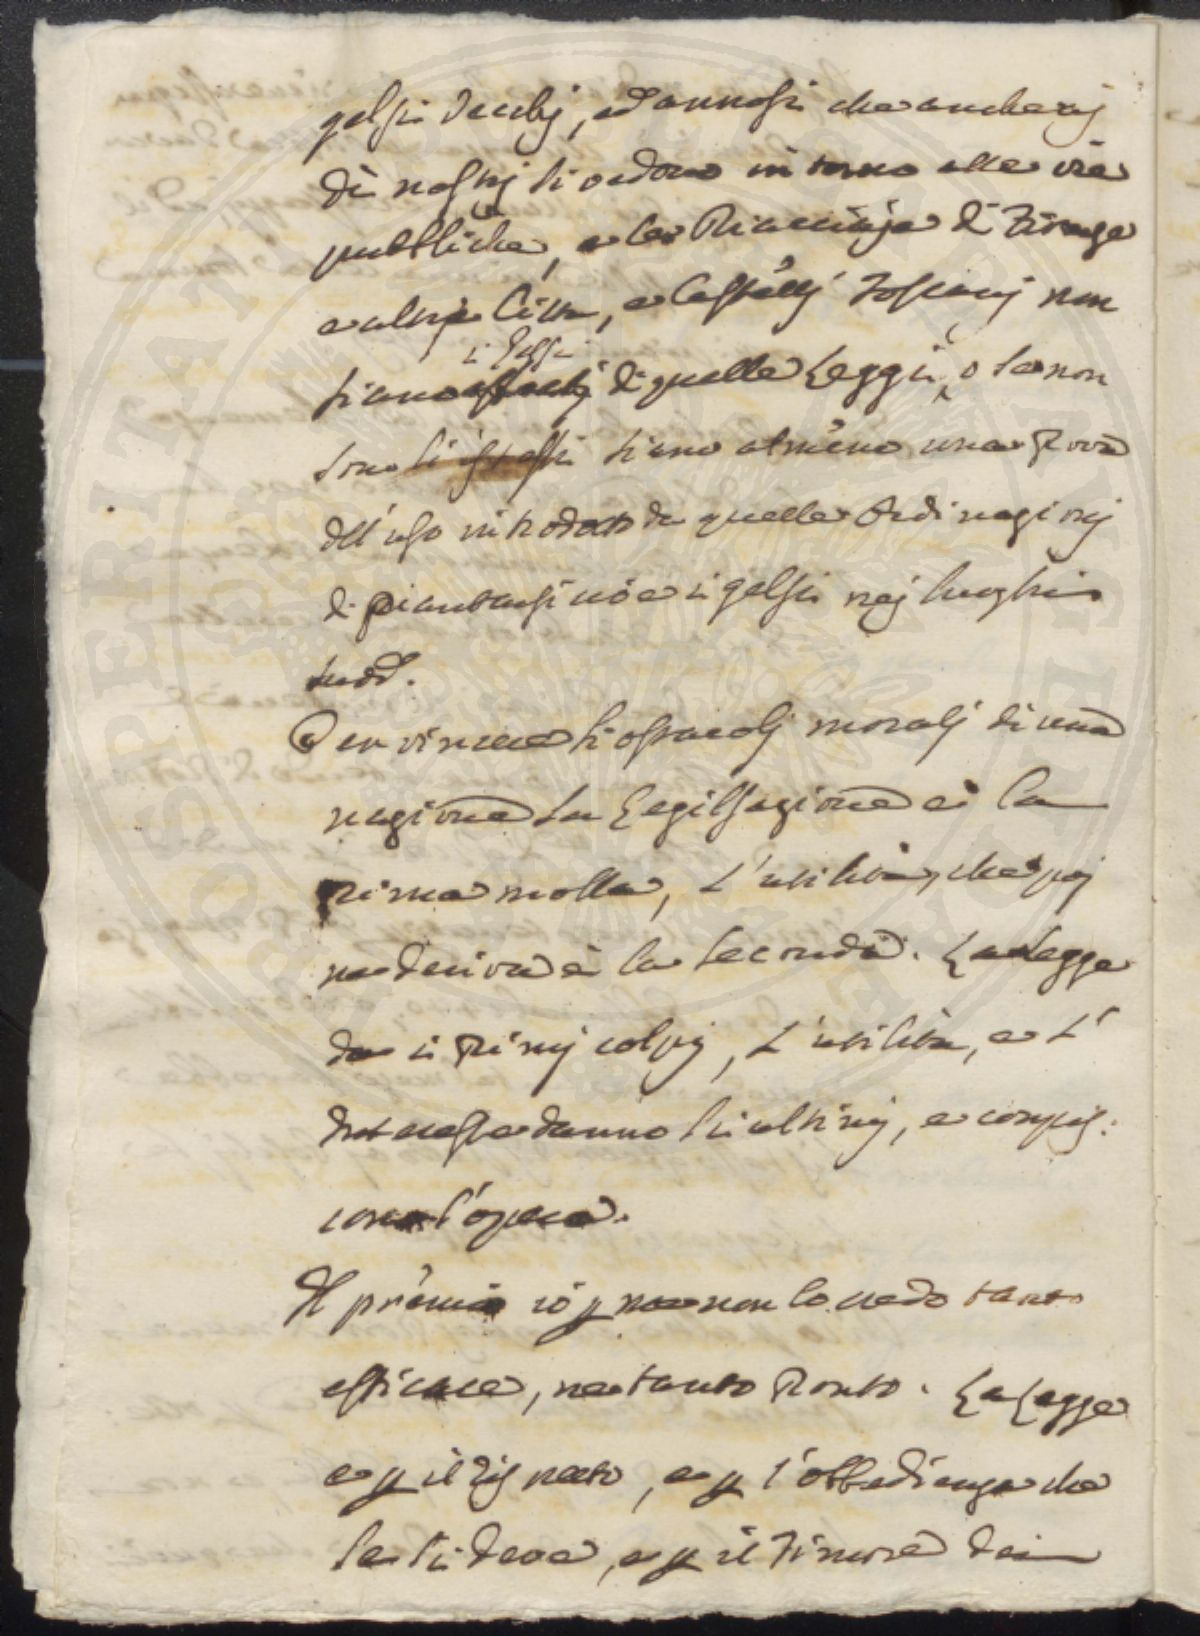 gelsi vecchj, ed annosi che anche aj
dì nostrj si vedono intorno alle vie
pubbliche, e le vicinanze di Firenze
e altre Città, e Castellj Toscanj non
i Gelsi
siano di quelle Leggi, o se non
sono li istessi siano almeno una prova
dell'uso introdotto da quelle Ordinazionj
di piantarsi cioè i gelsi nej luoghi
sudd.
Per vincere li ostacolj moralj di una
nazione la Legislazione è la
prima molla, l'utilità, che poj
ne deriva è la seconda. La Legge
da i primj colpj, l'utilità, e l'
Interesse danno li ultimj, e compis:
cono l'opera.
Il premio io p me non lo credo tanto
efficace, ne tanto pronto. La Legge
e p il rispetto, e p l'obbedienza che
se li deve, e p il timore dei
PROSPERITATI AUGENDAE